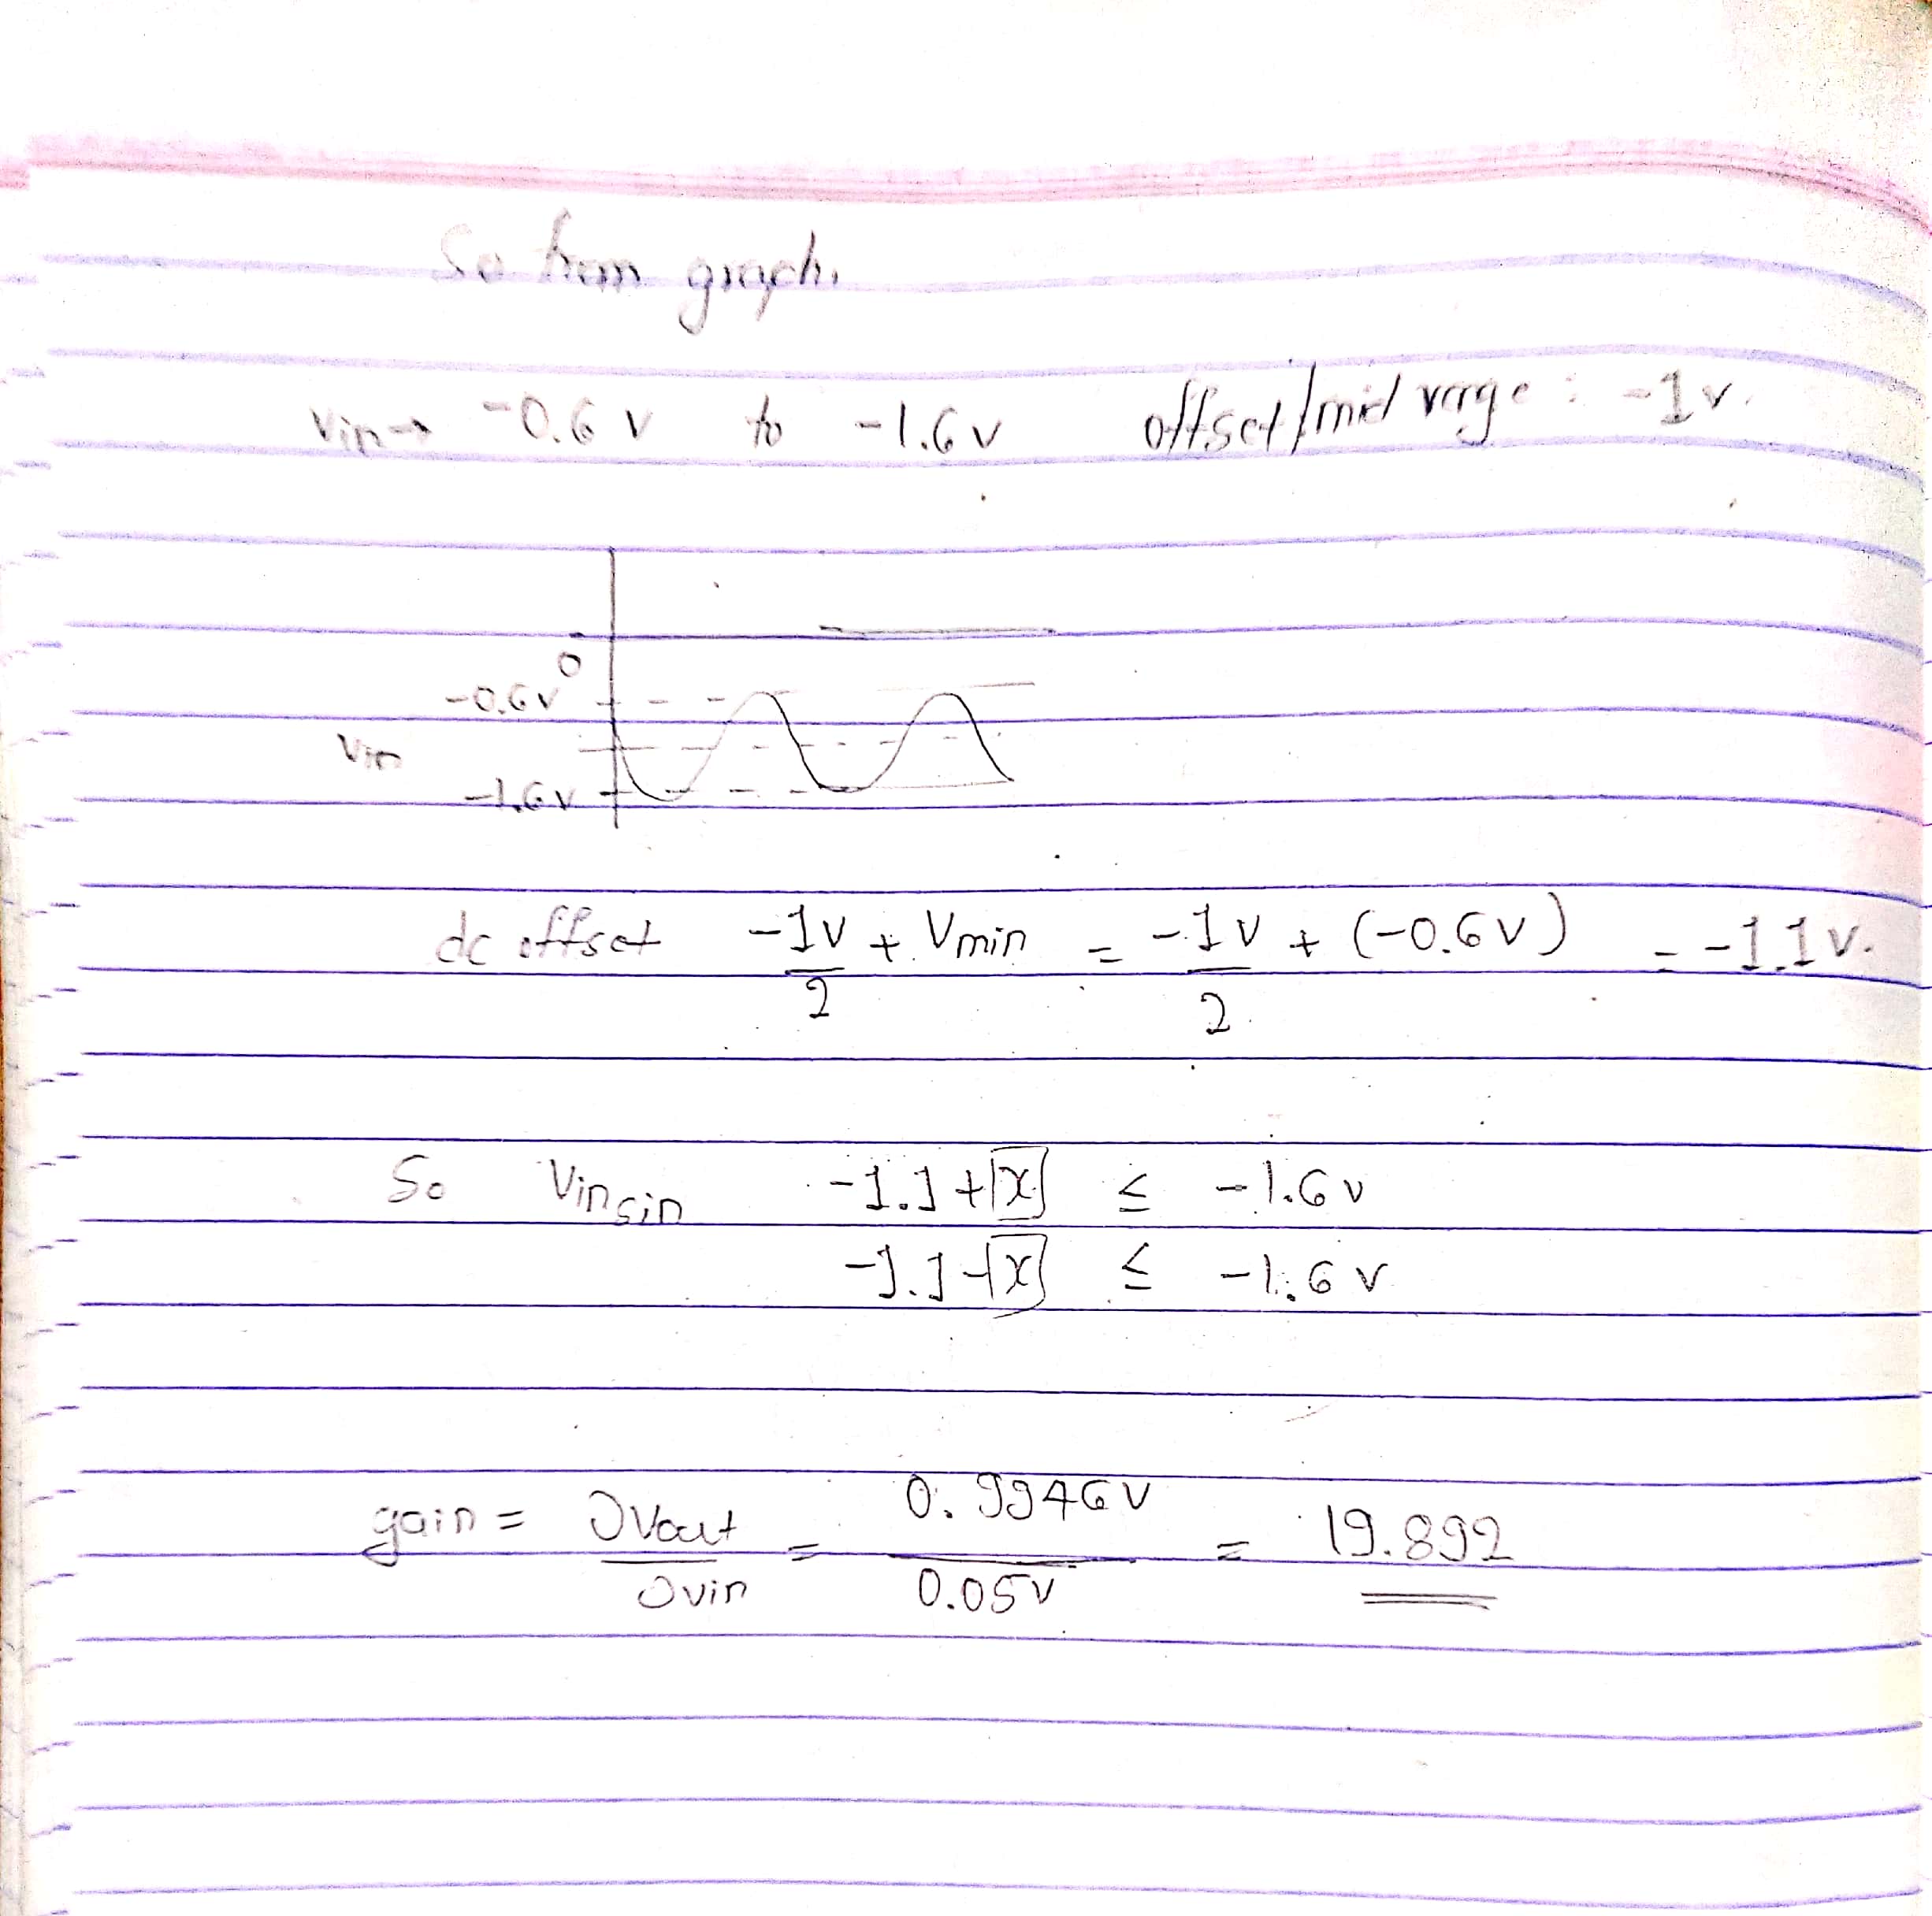 So from graph,
Vin → -0.6 v to -1.6 v offset/mid range : -1 v.
0
-0.6v
Vin
-1.6v
dc offset -1v/2 + Vmin = -1v/2 + (-0.6v) = -1.1v.
So Vin sin -1.1 + x ≤ -1.6 v
-1.1 - x ≤ -1.6 v
gain = ∂Vout/∂vin = 0.9946v/0.05v = 19.892